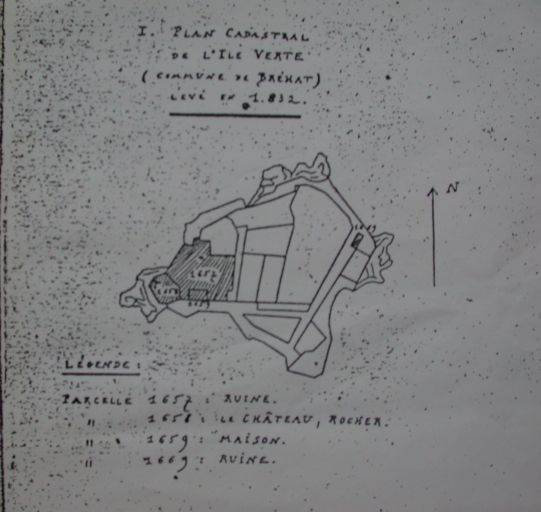 I. PLAN CADASTRAL
DE L'ILE VERTE
(COMMUNE DE BRÉHAT)
LEVÉ EN 1.832.
N
1669
1657
1658
1659
LÉGENDE:
PARCELLE 1657: RUINE.
" 1658: LE CHÂTEAU, ROCHER.
" 1659: MAISON.
" 1669: RUINE.